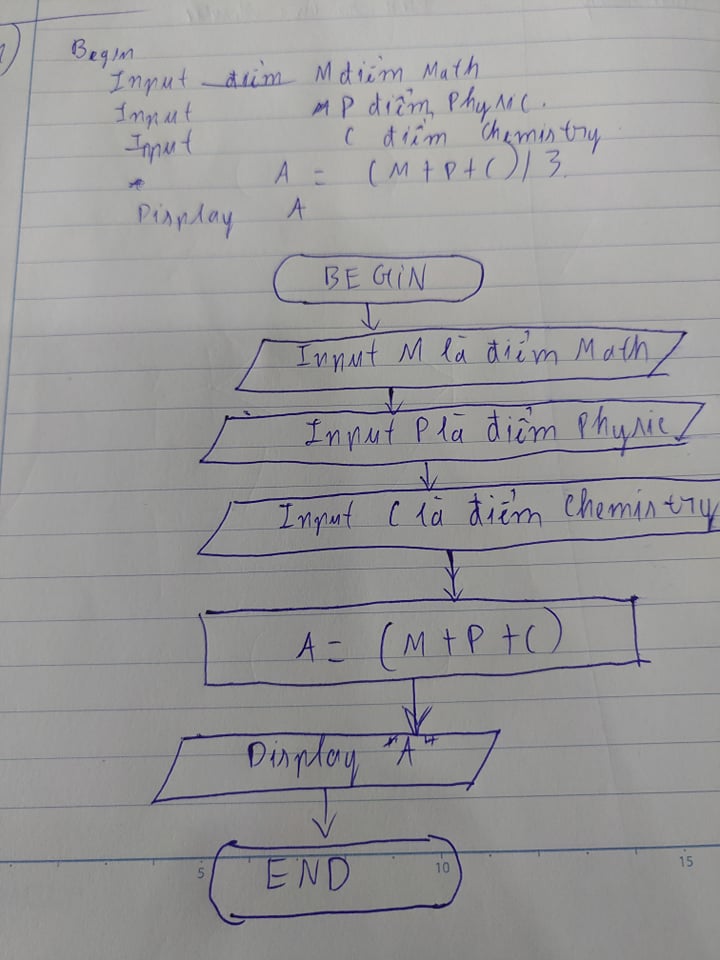 Begin
Input điểm M điểm Math
Input P điểm Physic.
Input C điểm Chemistry
A = (M+P+C)/3.
Display A
BEGIN
Input M là điểm Math
Input P là điểm Physic
Input C là điểm Chemistry
A = (M+P+C)
Display "A"
END
5 10 15